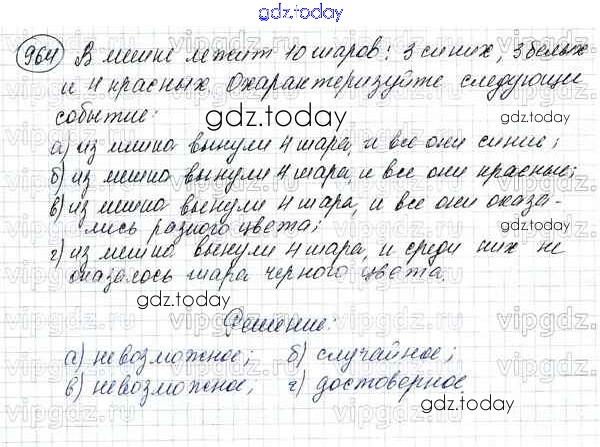 gdz.today
964 В мешке лежит 10 шаров: 3 синих, 3 белых
и 4 красных. Охарактеризуйте следующие
событие:
gdz.today
а) из мешка вынули 4 шара, и все они синие;
б) из мешка вынули 4 шара, и все они красные;
в) из мешка вынули 4 шара, и все они оказа-
лись разного цвета;
г) из мешка вынули 4 шара, и среди них не
оказалось шара черного цвета.
gdz.today
Решение:
а) невозможное; б) случайное;
в) невозможное; г) достоверное
gdz.today